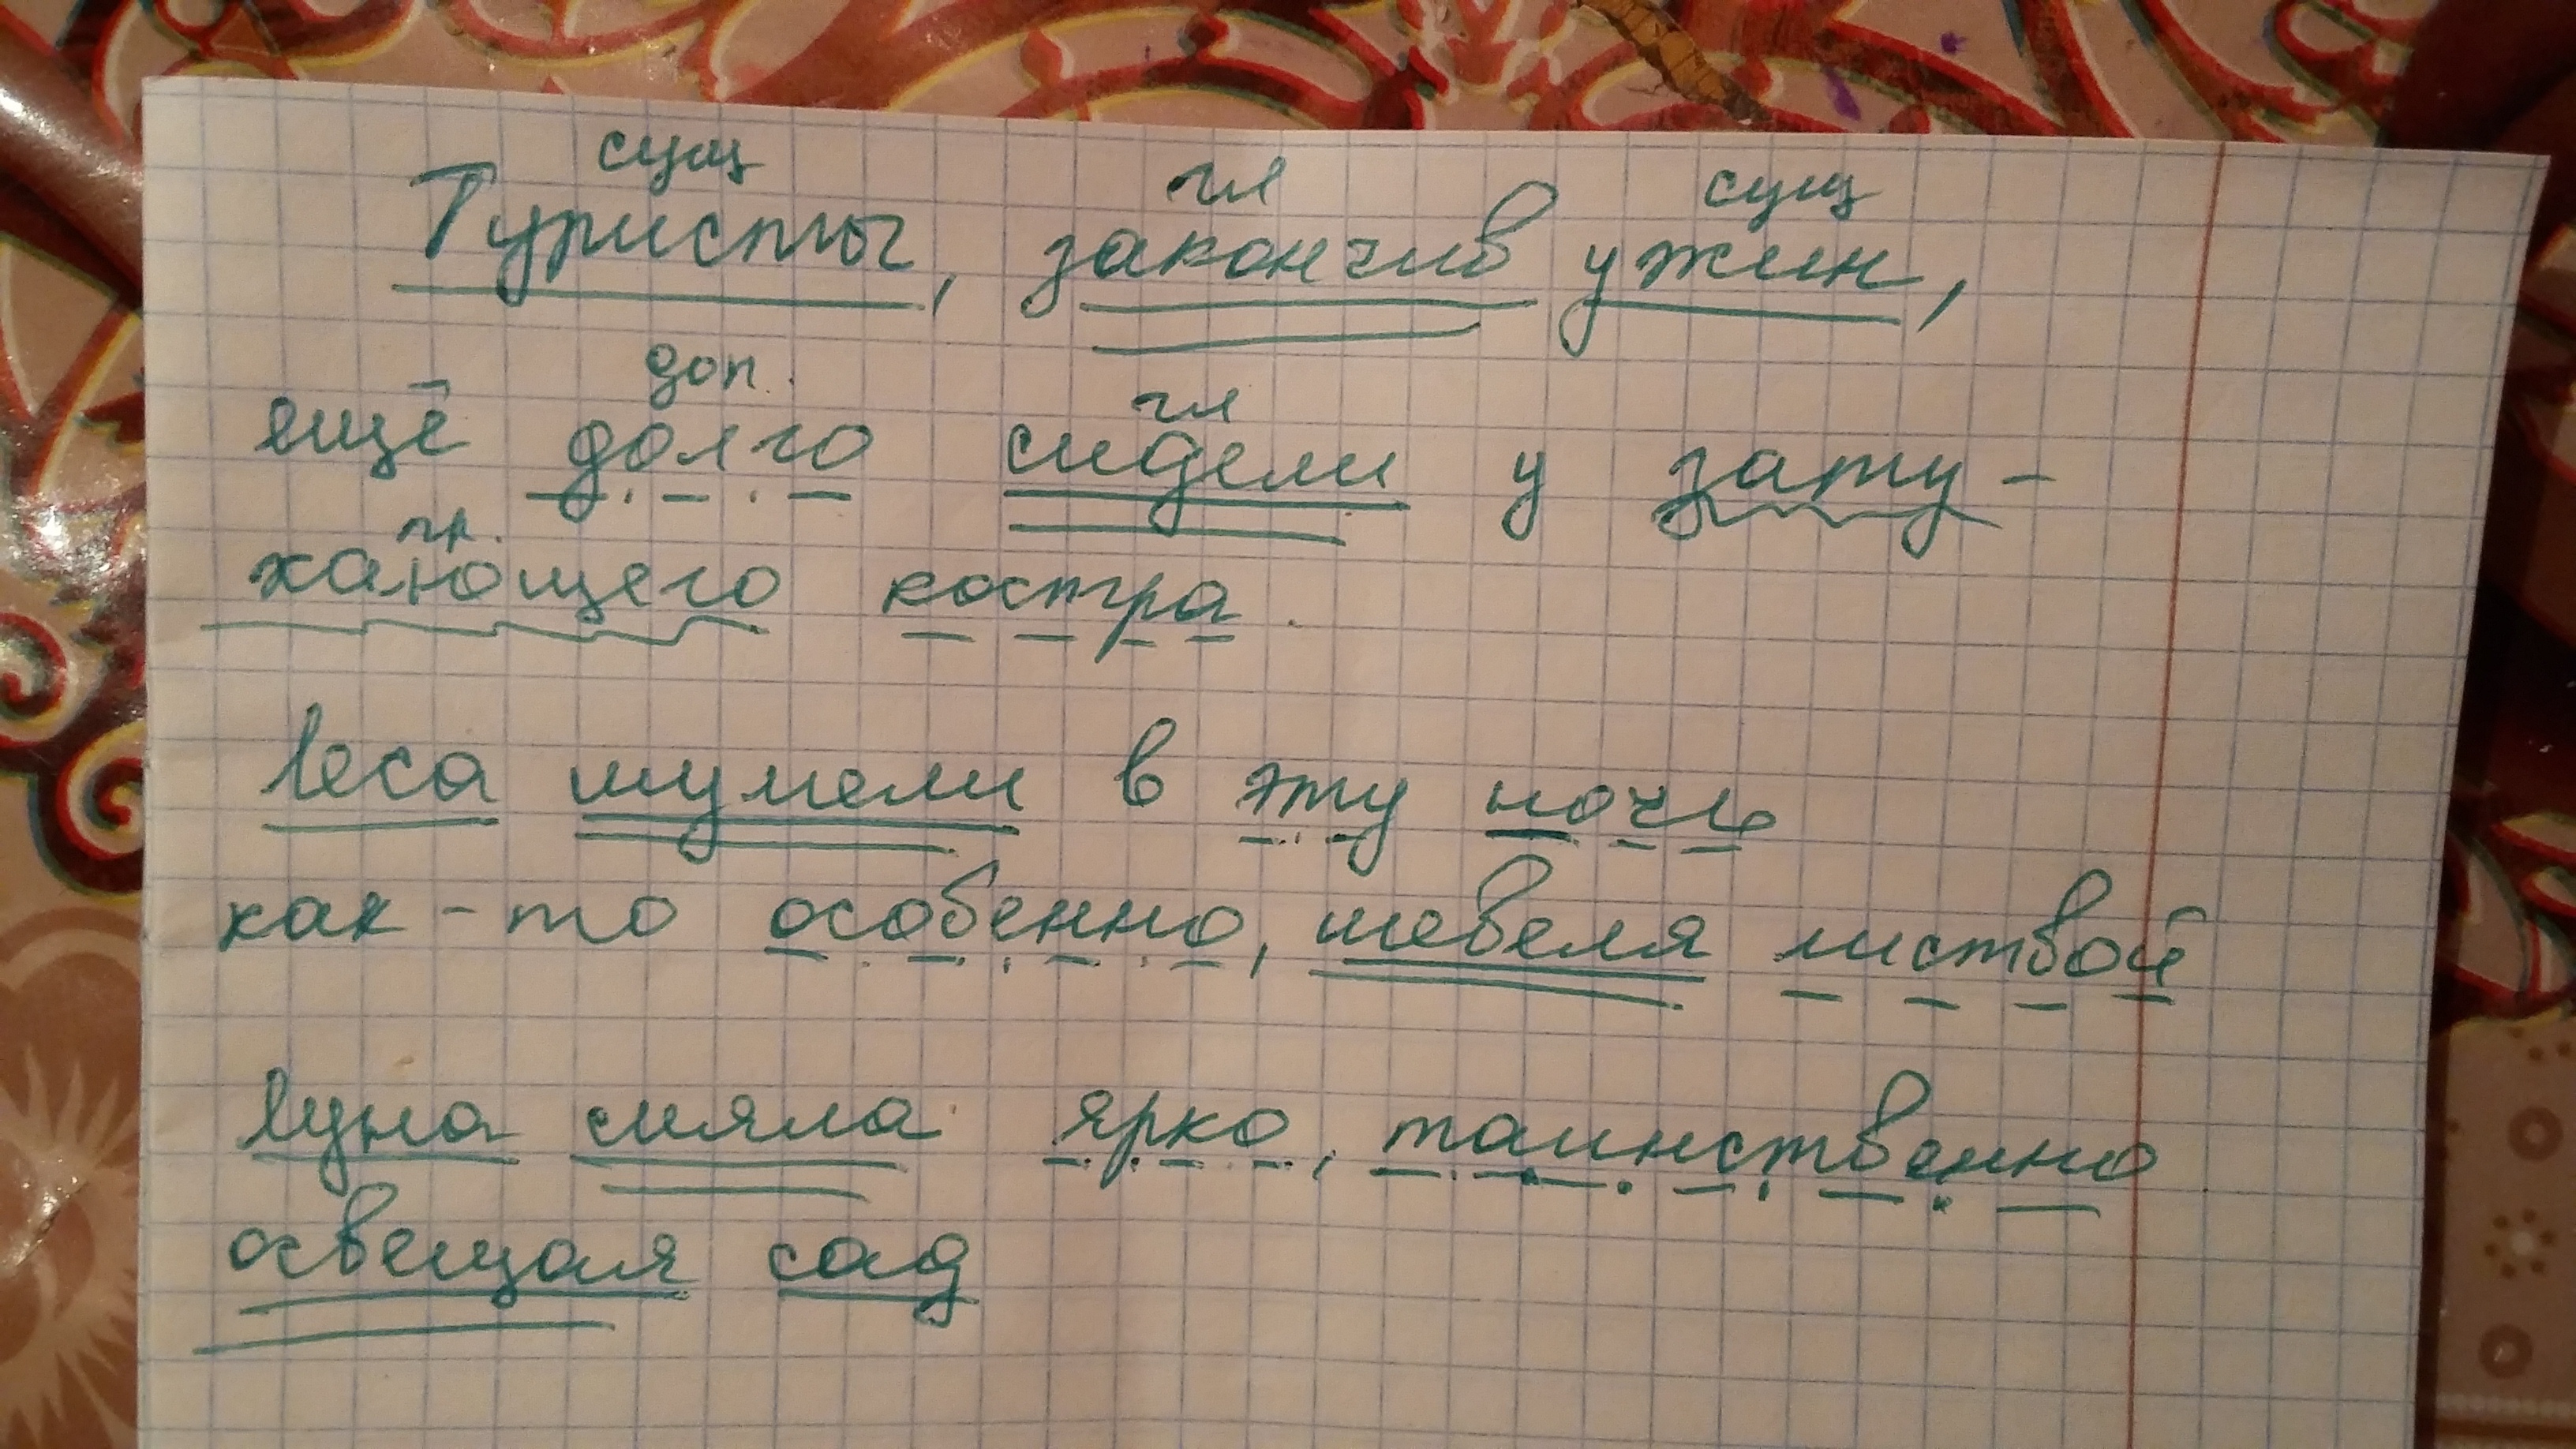 сущ гл сущ
Туристы, закончив ужин,
доп. гл
ещё долго сидели у зату-
пр.
хающего костра.
леса шумели в эту ночь
как-то особенно, шевеля листвой
луна сияла ярко, таинственно
освещая сад